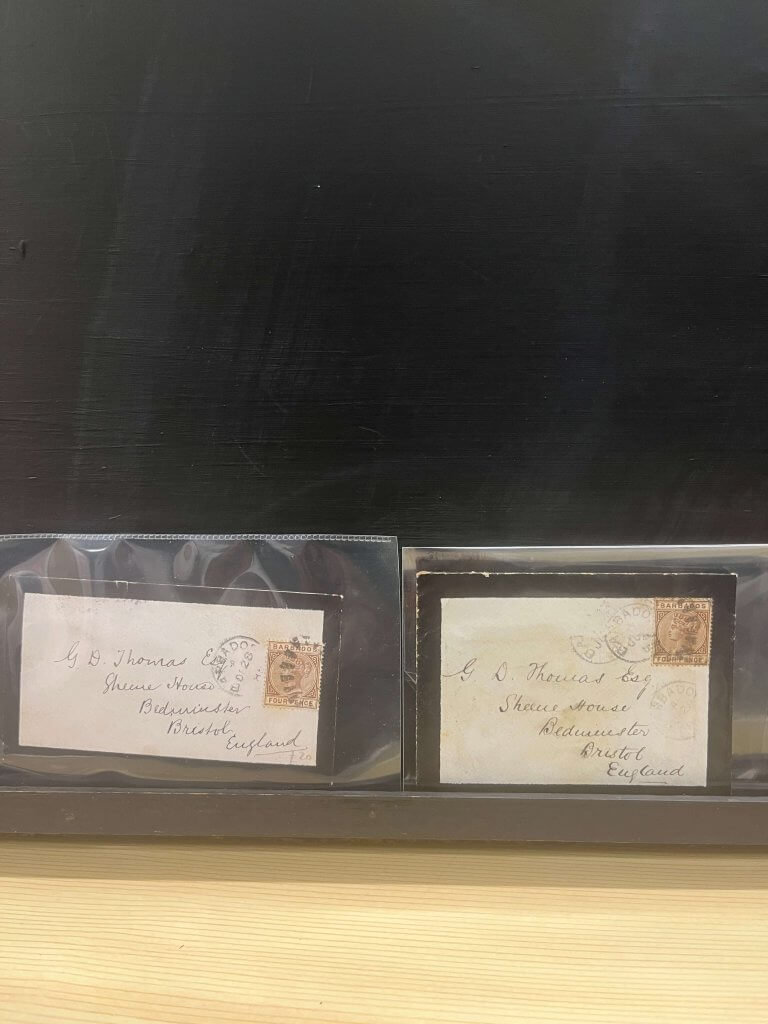 G. D. Thomas Esq
Sheene House
Bedminster
Bristol
England
BARBADOS
28
BARBADOS
FOUR PENCE
G D. Thomas Esq
Sheene House
Bedminster
Bristol
England
BARBADOS
BARBADOS
FOUR PENCE